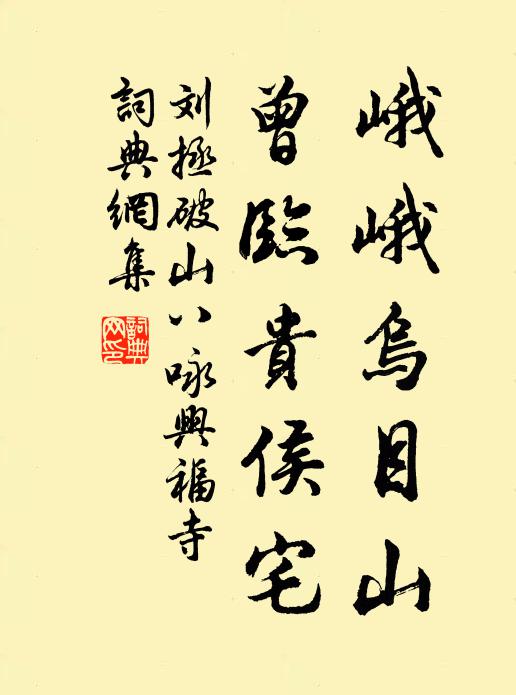 峨峨烏目山
曾臨貴侯宅
刘拯破山八咏興福寺
詞典網集
詞典网印